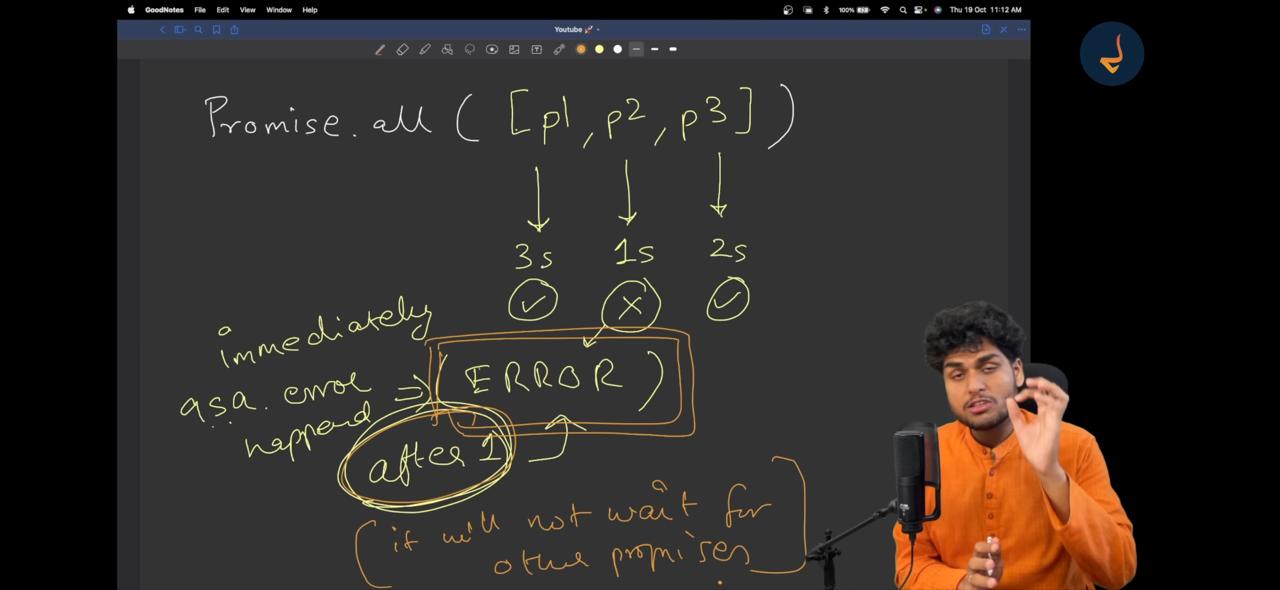 GoodNotes File Edit View Window Help
100% Thu 19 Oct 11:12 AM
Youtube 🚀
Promise.all ( [p1, p2, p3] )
3s 1s 2s
immediately
a.s.a. error
happend
=> ( ERROR )
after 1
( it will not wait for
other promises